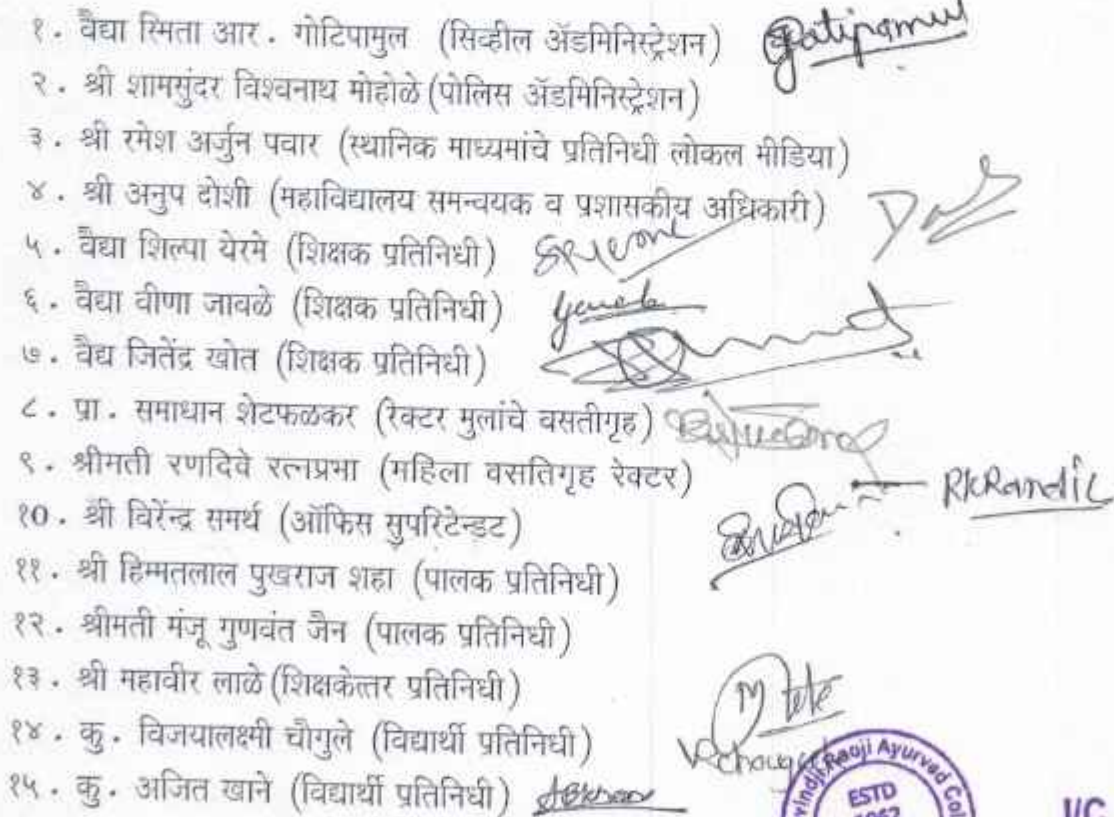 १. वैद्या स्मिता आर. गोटिपामुल (सिव्हील ॲडमिनिस्ट्रेशन) Gatipamul
२. श्री शामसुंदर विश्वनाथ मोहोळे (पोलिस ॲडमिनिस्ट्रेशन)
३. श्री रमेश अर्जुन पवार (स्थानिक माध्यमांचे प्रतिनिधी लोकल मीडिया)
४. श्री अनुप दोशी (महाविद्यालय समन्वयक व प्रशासकीय अधिकारी)
५. वैद्या शिल्पा येरमे (शिक्षक प्रतिनिधी)
६. वैद्या वीणा जावळे (शिक्षक प्रतिनिधी)
७. वैद्य जितेंद्र खोत (शिक्षक प्रतिनिधी)
८. प्रा. समाधान शेटफळकर (रेक्टर मुलांचे वसतीगृह)
९. श्रीमती रणदिवे रत्नप्रभा (महिला वसतिगृह रेक्टर) RKRandil
१0. श्री विरेंन्द्र समर्थ (ऑफिस सुपरिटेन्डट)
११. श्री हिम्मतलाल पुखराज शहा (पालक प्रतिनिधी)
१२. श्रीमती मंजू गुणवंत जैन (पालक प्रतिनिधी)
१३. श्री महावीर लाळे (शिक्षकेत्तर प्रतिनिधी)
१४. कु. विजयालक्ष्मी चौगुले (विद्यार्थी प्रतिनिधी)
१५. कु. अजित खाने (विद्यार्थी प्रतिनिधी)
Raoji Ayurved
ESTD
I/C